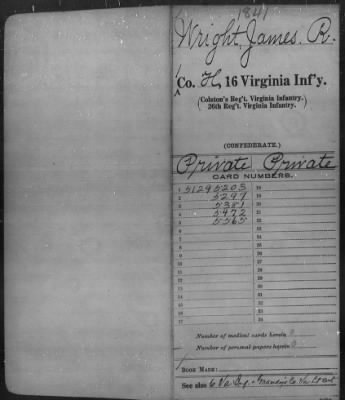 1841
Wright, James. R.
Co. H, 16 Virginia Inf'y.
(Colston's Reg't. Virginia Infantry.
26th Reg't. Virginia Infantry.)
(CONFEDERATE.)
Private Private
CARD NUMBERS.
1 51295203 18
2 5297 19
3 5381 20
4 5472 21
5 5565 22
6 23
7 24
8 25
9 26
10 27
11 28
12 29
13 30
14 31
15 32
16 33
17 34
Number of medical cards herein 0
Number of personal papers herein 0
BOOK MARK:
See also 6 Va.